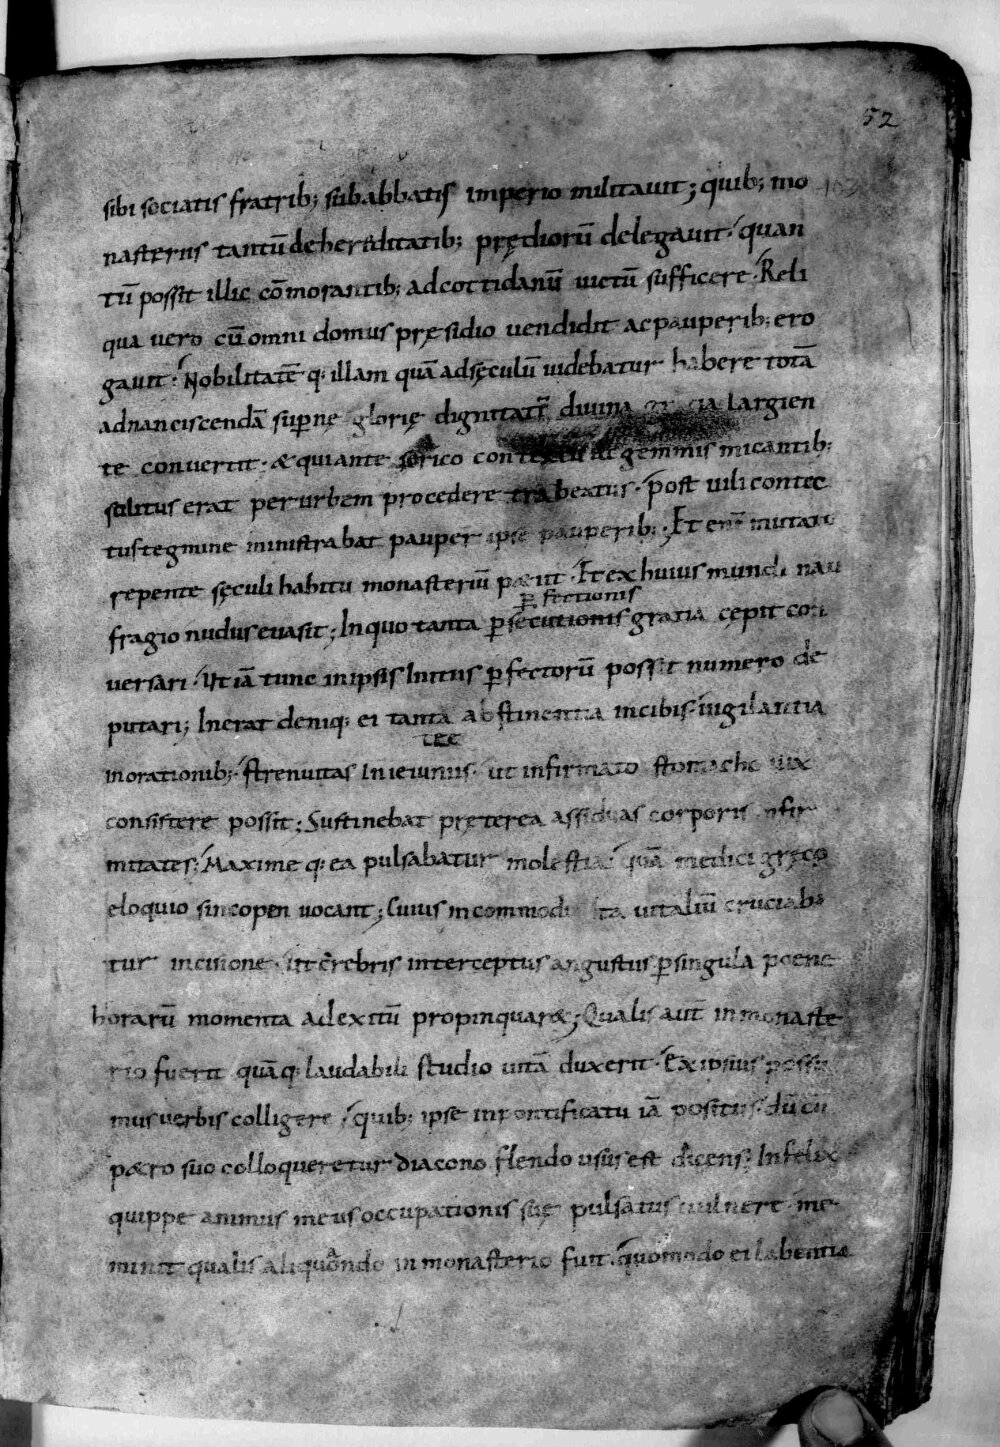 52
sibi sociatis fratrib; sub abbatis imperio militauit; quib; mo
nasteriis tantū de hereditatib; prędiorū delegauit · quan
tū possit illic cōmorantib; ad cottidianū uictū sufficere · Reli
qua uero cū omni domus pręsidio uendidit ac pauperib; ero
gauit · Nobilitatē q; illam quā ad sęculū uidebatur habere totā
ad nanciscendā supnę glorię dignitatē diuina largien
te conuertit · & qui ante serico contextu ac gemmis micantib;
solitus erat per urbem procedere trabeatus · post uili contec
tus tegmine ministrabat pauper ipse pauperib; · Et enī mutato
repente sęculi habitu monasteriū p&iit · Et ex huius mundi nau
p fectionis
fragio nudus euasit; In quo tanta psecutionis gratia cępit con
uersari · Ut iā tunc in ipsis Initiis pfectorū possit numero de
putari; Inerat deniq; ei tanta abstinentia in cibis · uigilantia
in orationib; · strenuitas In ieiuniis · ut infirmato stomacho uix
consistere possit; Sustinebat pręterea assiduas corporis infir
mitates · Maxime q; ea pulsabatur molestia · quā medici gręco
eloquio sincopen uocant; Cuius incommodi ita uitaliū cruciaba
tur incisione · ut crebris interceptus angustiis p singula poene
horarū momenta ad exitū propinquar&; Qualis aut in monaste
rio fuerit quāq; laudabili studio uitā duxerit · Ex ipsius possu
mus uerbis colligere · quib; ipse in pontificatu iā positus · dū cū
p&ro suo colloqueretur diacono flendo usus est dicens; Infelix
quippe animus meus occupationis suę pulsatus uulnere · me
minit qualis aliquando in monasterio fuit · quomodo ei labentia